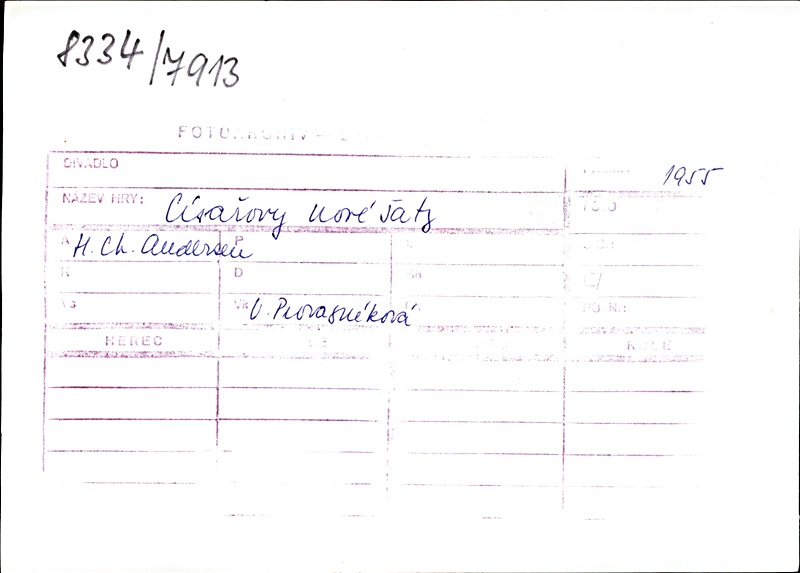 8334/7913
FOTOARCHIV –
DIVADLO
1955
NÁZEV HRY: Císařovy nové šaty
FOTO
A H. Ch. Andersen P
R D Sh
VS VK V. Provazníková
HEREC ROLE